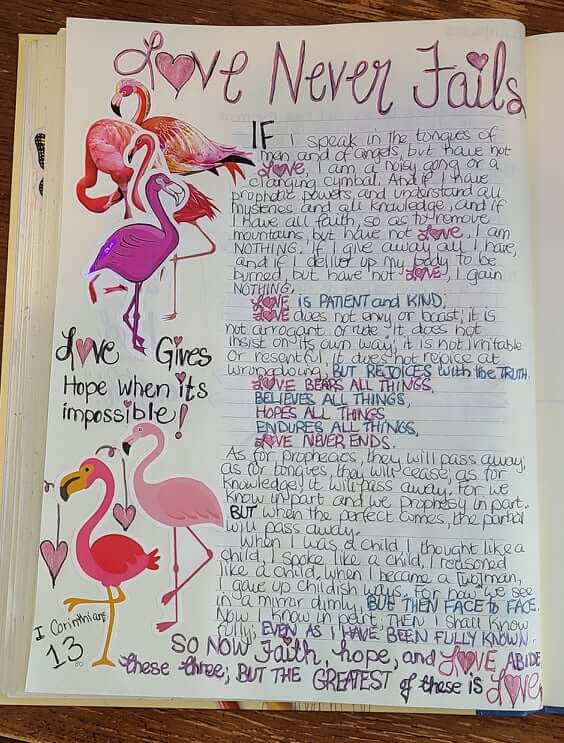 Love Never Fails
IF I speak in the tongues of
men and of angels, but have not
Love, I am a noisy gong or a
clanging cymbal. And if I have
prophetic powers, and understand all
mysteries and all knowledge, and if
I have all faith, so as to remove
mountains, but have not Love, I am
NOTHING. If I give away all I have,
and if I deliver up my body to be
burned, but have not Love, I gain
NOTHING.
LOVE is PATIENT and KIND,
LOVE does not envy or boast; it is
not arrogant or rude. It does not
insist on its own way; it is not irritable
or resentful; it does not rejoice at
wrongdoing, BUT REJOICES with the TRUTH.
LOVE BEARS ALL THINGS,
BELIEVES ALL THINGS,
HOPES ALL THINGS
ENDURES ALL THINGS,
LOVE NEVER ENDS.
As for prophecies, they will pass away;
as for tongues, they will cease; as for
knowledge, it will pass away. For we
know in part and we prophesy in part.
BUT when the perfect comes, the partial
will pass away.
When I was a child, I thought like a
child, I spoke like a child, I reasoned
like a child, when I became a [wo]man,
I gave up childish ways. For now we see
in a mirror dimly, BUT THEN FACE to FACE.
Now I know in part; THEN I shall know
fully; EVEN AS I HAVE BEEN FULLY KNOWN.
SO NOW Faith, hope, and LOVE ABIDE
these three; BUT THE GREATEST of these is LOVE
Love Gives
Hope when its
impossible!
I Corinthians
13